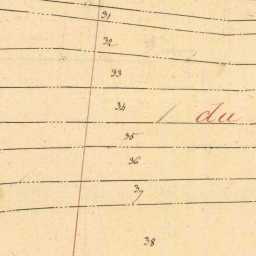 31
32
33
34
du
35
36
37
38